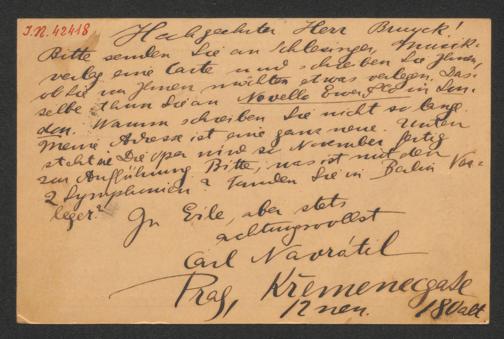 I.N. 42418
Hochgeehrter Herr Bruyck!
Bitte senden Sie an Schlesinger, Musik-
verlag eine Carte und schreiben Sie Ihnen,
ob sie von Ihnen möchten etwas verlegen. Das-
selbe thun Sie an Novello Ewer & Co in Lon-
don. Warum schreiben Sie nicht so lange.
Meine Adresse ist eine ganz neue. Unten
steht sie. Die Oper wird so November fertig
zur Aufführung. Bitte, was ist mit den
2 Symphonien? Fanden Sie in Berlin Ver-
leger?
In Eile, aber stets
achtungsvollst
Carl Navrátil
Prag, Křemenecgasse
12 neu. 180 alt